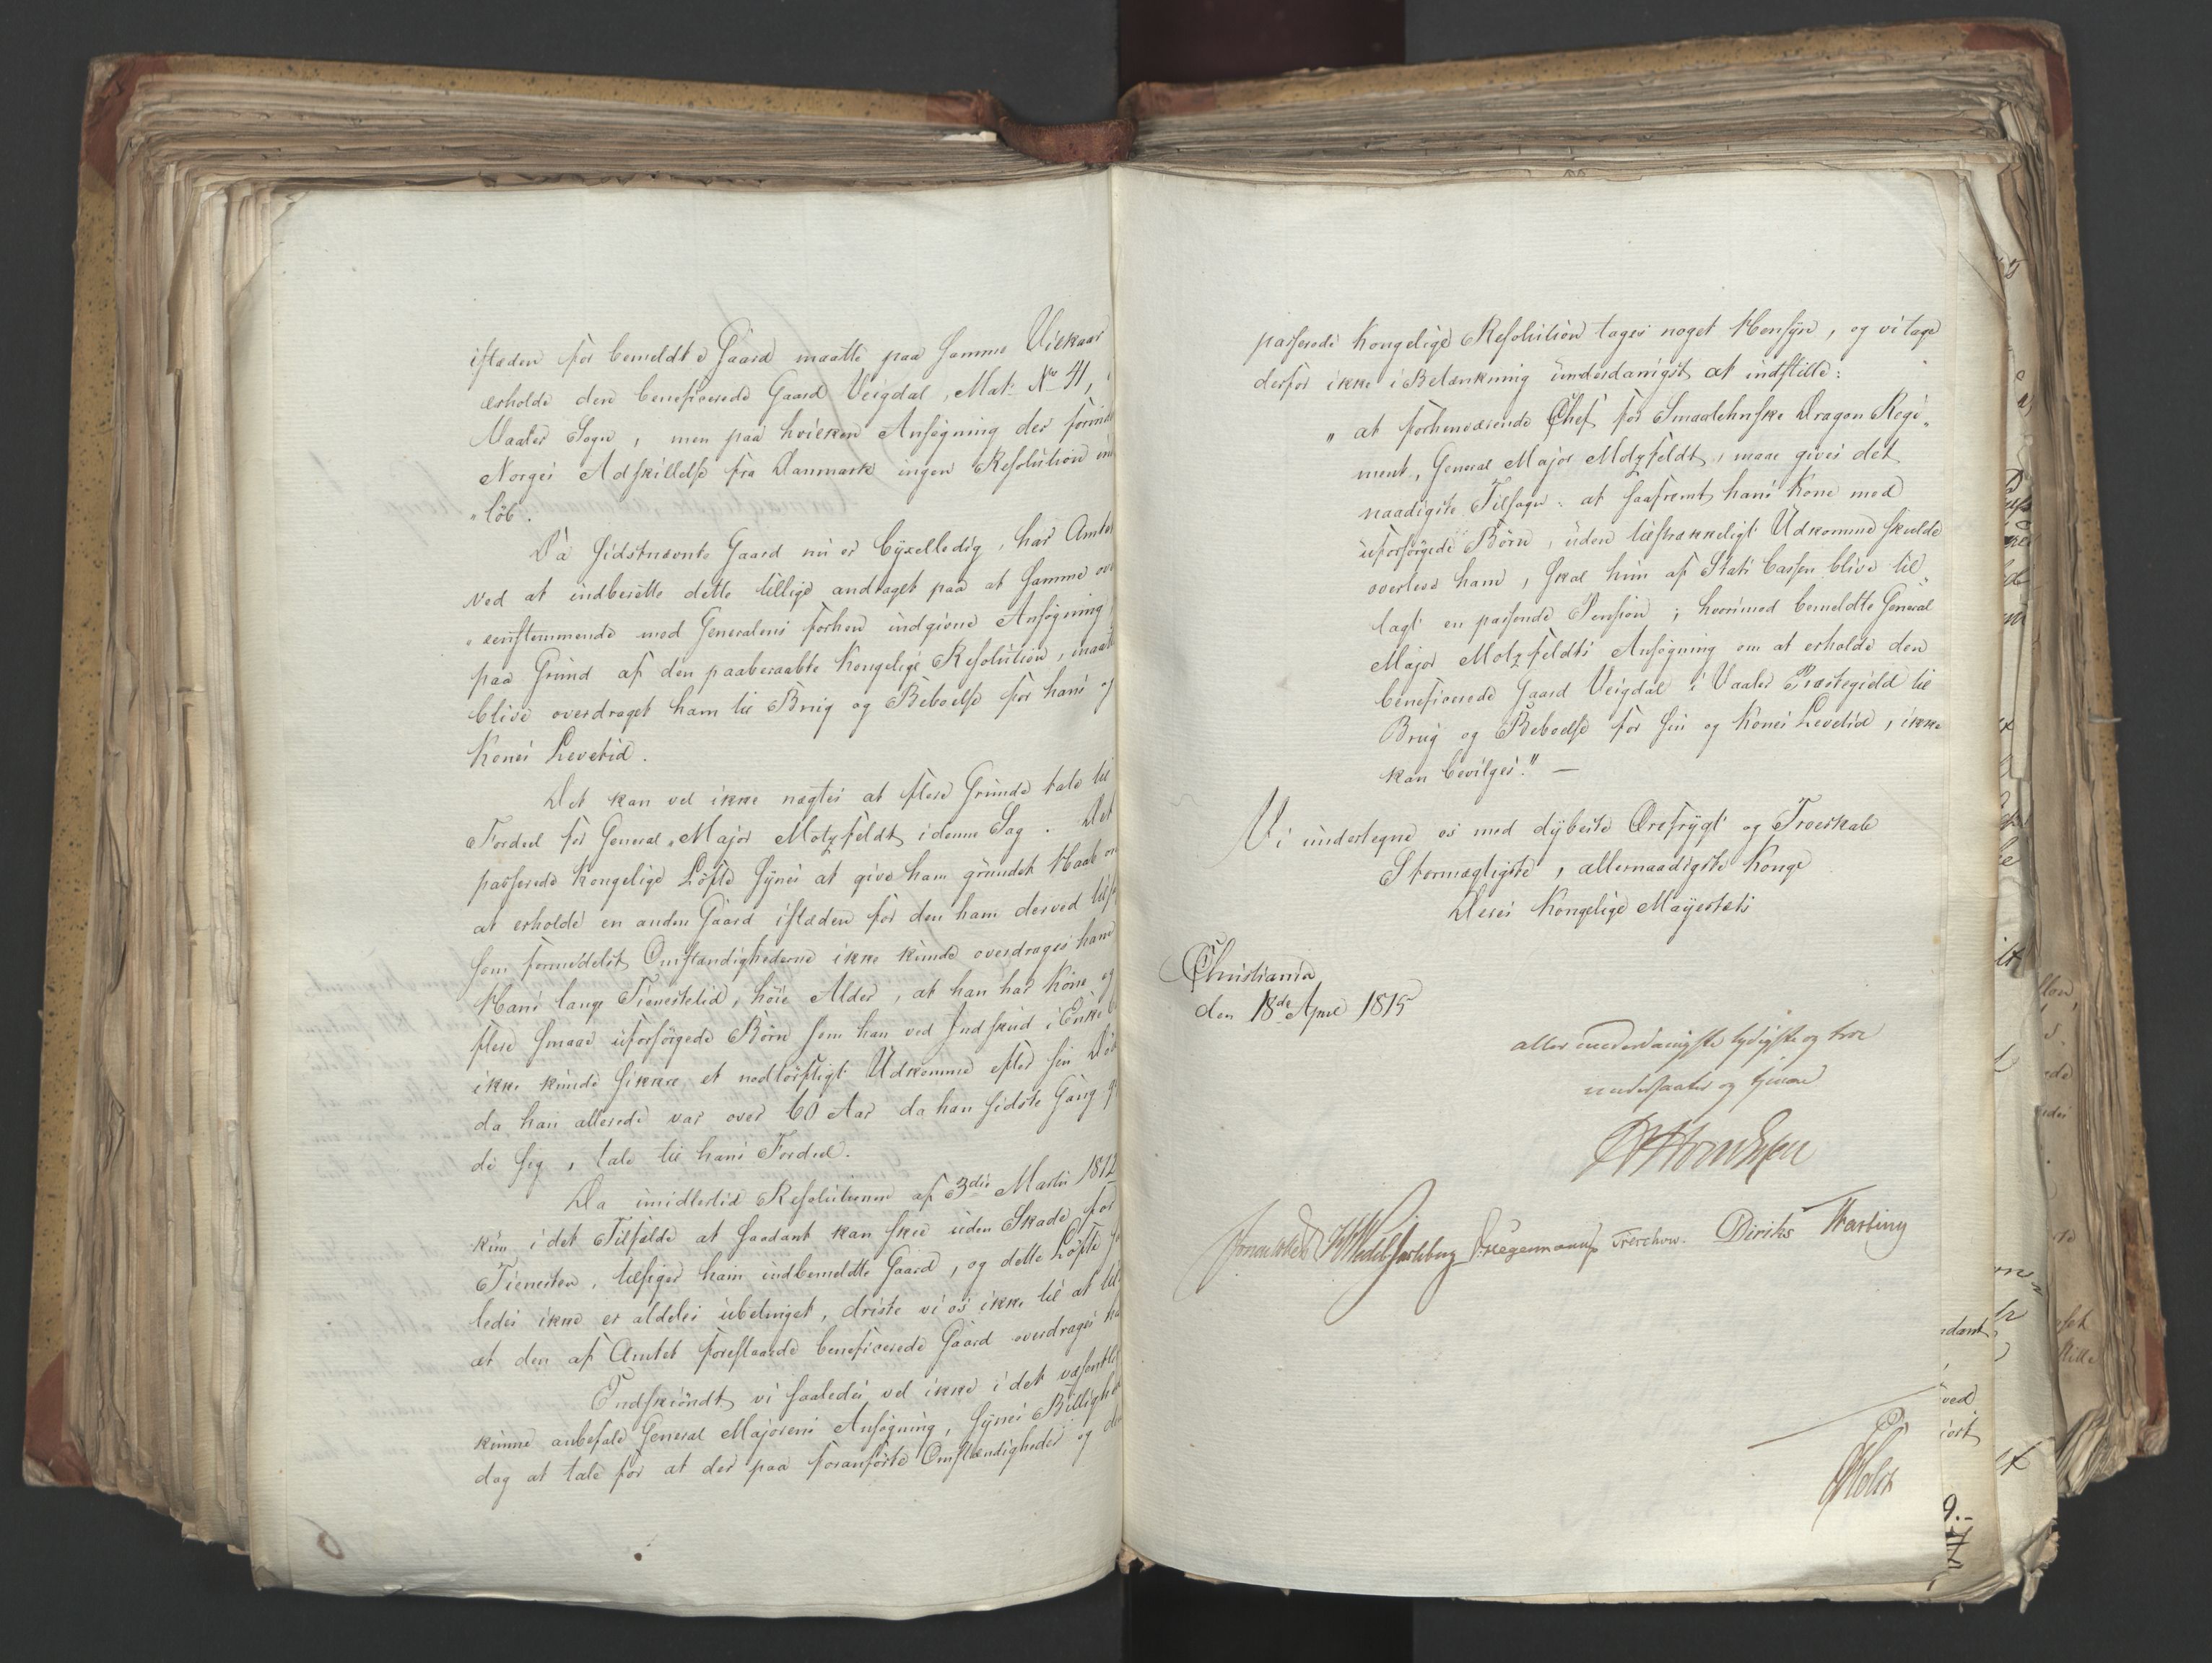 istæden for bemeldte Gaard maatte paa samme Vilkaar
erholde den beneficerede Gaard Veigdal, Mat: No 41,
Vaaler Sogn, men paa hvilken Ansøgning der forind
Norges Adskillelse fra Danmark ingen Resolution ind
„løb.
Da sidstnævnte Gaard nu er byxelledig, har Amtet
ved at indberette dette tillige andraget paa at samme ove
„eensstemmende med Generalens forhen indgivne Ansøgning
paa Grund af den paaberaabte Kongelige Resolution, maat
blive overdraget ham til Brug og Beboelse for hans og
Kones Levetid.
Det kan vel ikke nægtes at flere Grunde tale til
Fordeel for General-Major Motzfeldt i denne Sag. Det
passerede Kongelige Løfte synes at give ham grundet Haab om
at erholde en anden Gaard istæden for den ham derved tils
som formedelst Omstændighederne ikke kunde overdrages ham
Hans lange Tienestetid, høie Alder, at han har Kone og
flere smaae uforsørgede Børn som han ved Indskud i Enke
ikke kunde sikkre et nødtørftigt Udkomme efter sin Død
da han allerede var over 60 Aar da han sidste Gang g
de sig, tale til hans Fordeel.
Da imidlertid Resolutionen af 3die Martii 1812
kun i det Tilfælde at saadant kan skee uden Skade for
Tienesten, tilsiger ham indbemeldte Gaard, og dette Løfte saa
ledes ikke er aldeles ubetinget, driste vi os ikke til at til
at den af Amtet foreslaaede beneficerede Gaard overdrages ha
Endskiøndt vi saaledes vel ikke i det væsentli
kunne anbefale General Majorens Ansøgning, synes Billighe
dog at tale for at der paa foranførte Omstændigheder og de
passerede Kongelige Resolution tages noget Hensyn, og vi tage
derfor ikke i Betænkning underdanigst at indstille:
„at forhenværende Chef for Smaalehnske Dragon Regi„
ment, General Major Motzfeldt, maae gives det
naadigste Tilsagn: at saafremt hans Kone med
uforsørgede Børn, uden tilstrækkeligt Udkomme skulde
overleve ham, skal hun af Stats Cassen blive til„
lagt en passende Pension; hvorimod bemeldte General
Major Motzfeldts Ansøgning om at erholde den
beneficerede Gaard Veigdal i Vaaler Præstegield til
Brug og Beboelse for sin og Kones Levetid, ikke
kan bevilges." —
Vi undertegne os med dybeste Ærefrygt og Troeskab
Stormægtigste, allernaadigste Konge
Deres Kongelige Majestæts
Christiania
den 18de April 1815
allerunderdanigste lydigste og troe
undersaatter og tjenere
Sommerhielm HWedel Jarlsberg Hegermann Treschow. Diriks Hartung
Holst